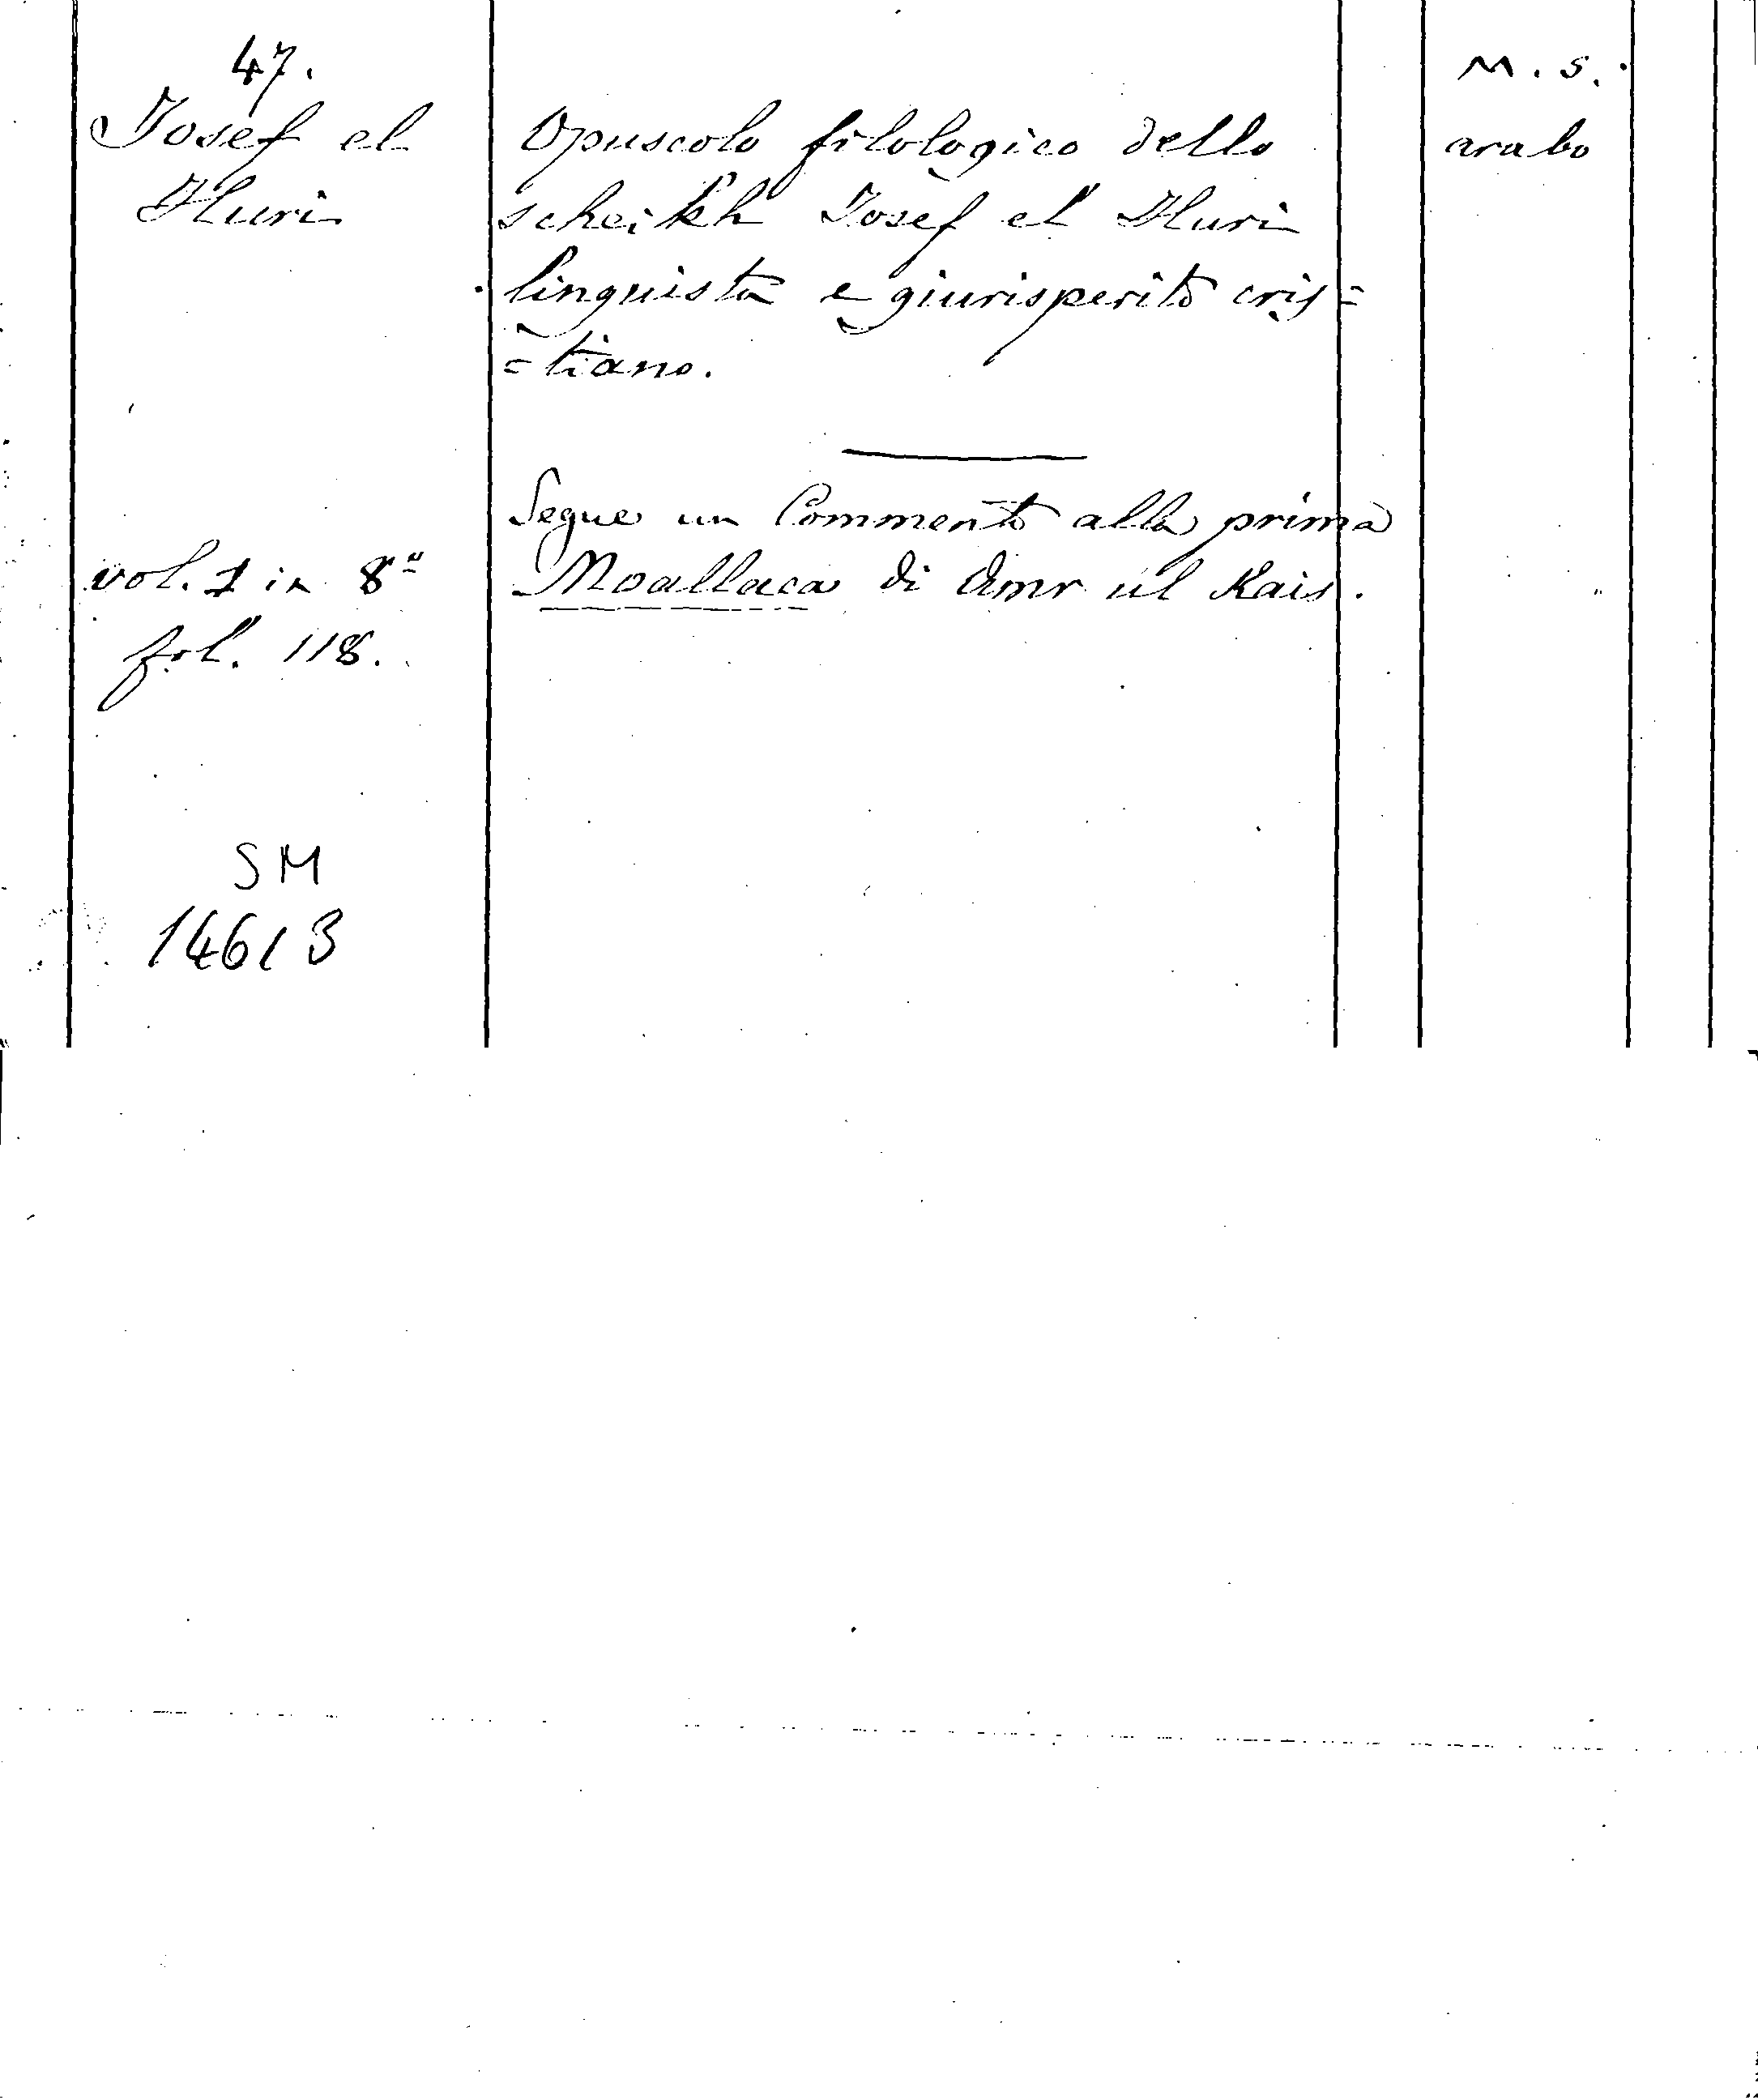 47.
Josef el
Huri
vol. 1 in 8º
fol. 118.
SM
146/3
Opuscolo filologico dello
scheikh Josef el Huri
linguista e giurisperito cris=
=tiano.
Segue un Commento alla prima
Moallaca di Amr ul Kais.
M. S.
arabo